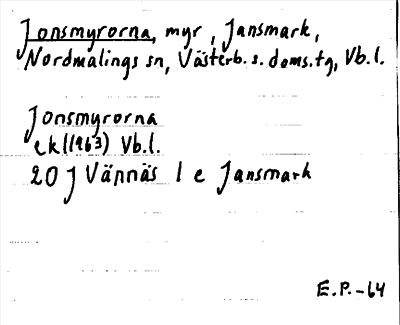 Jonsmyrorna, myr, Jansmark,
Nordmalings sn, Västerb. s. doms.tg, Vb.l.
Jonsmyrorna
ek(1963) Vb.l.
20 J Vännäs 1 e Jansmark
E.P.-64